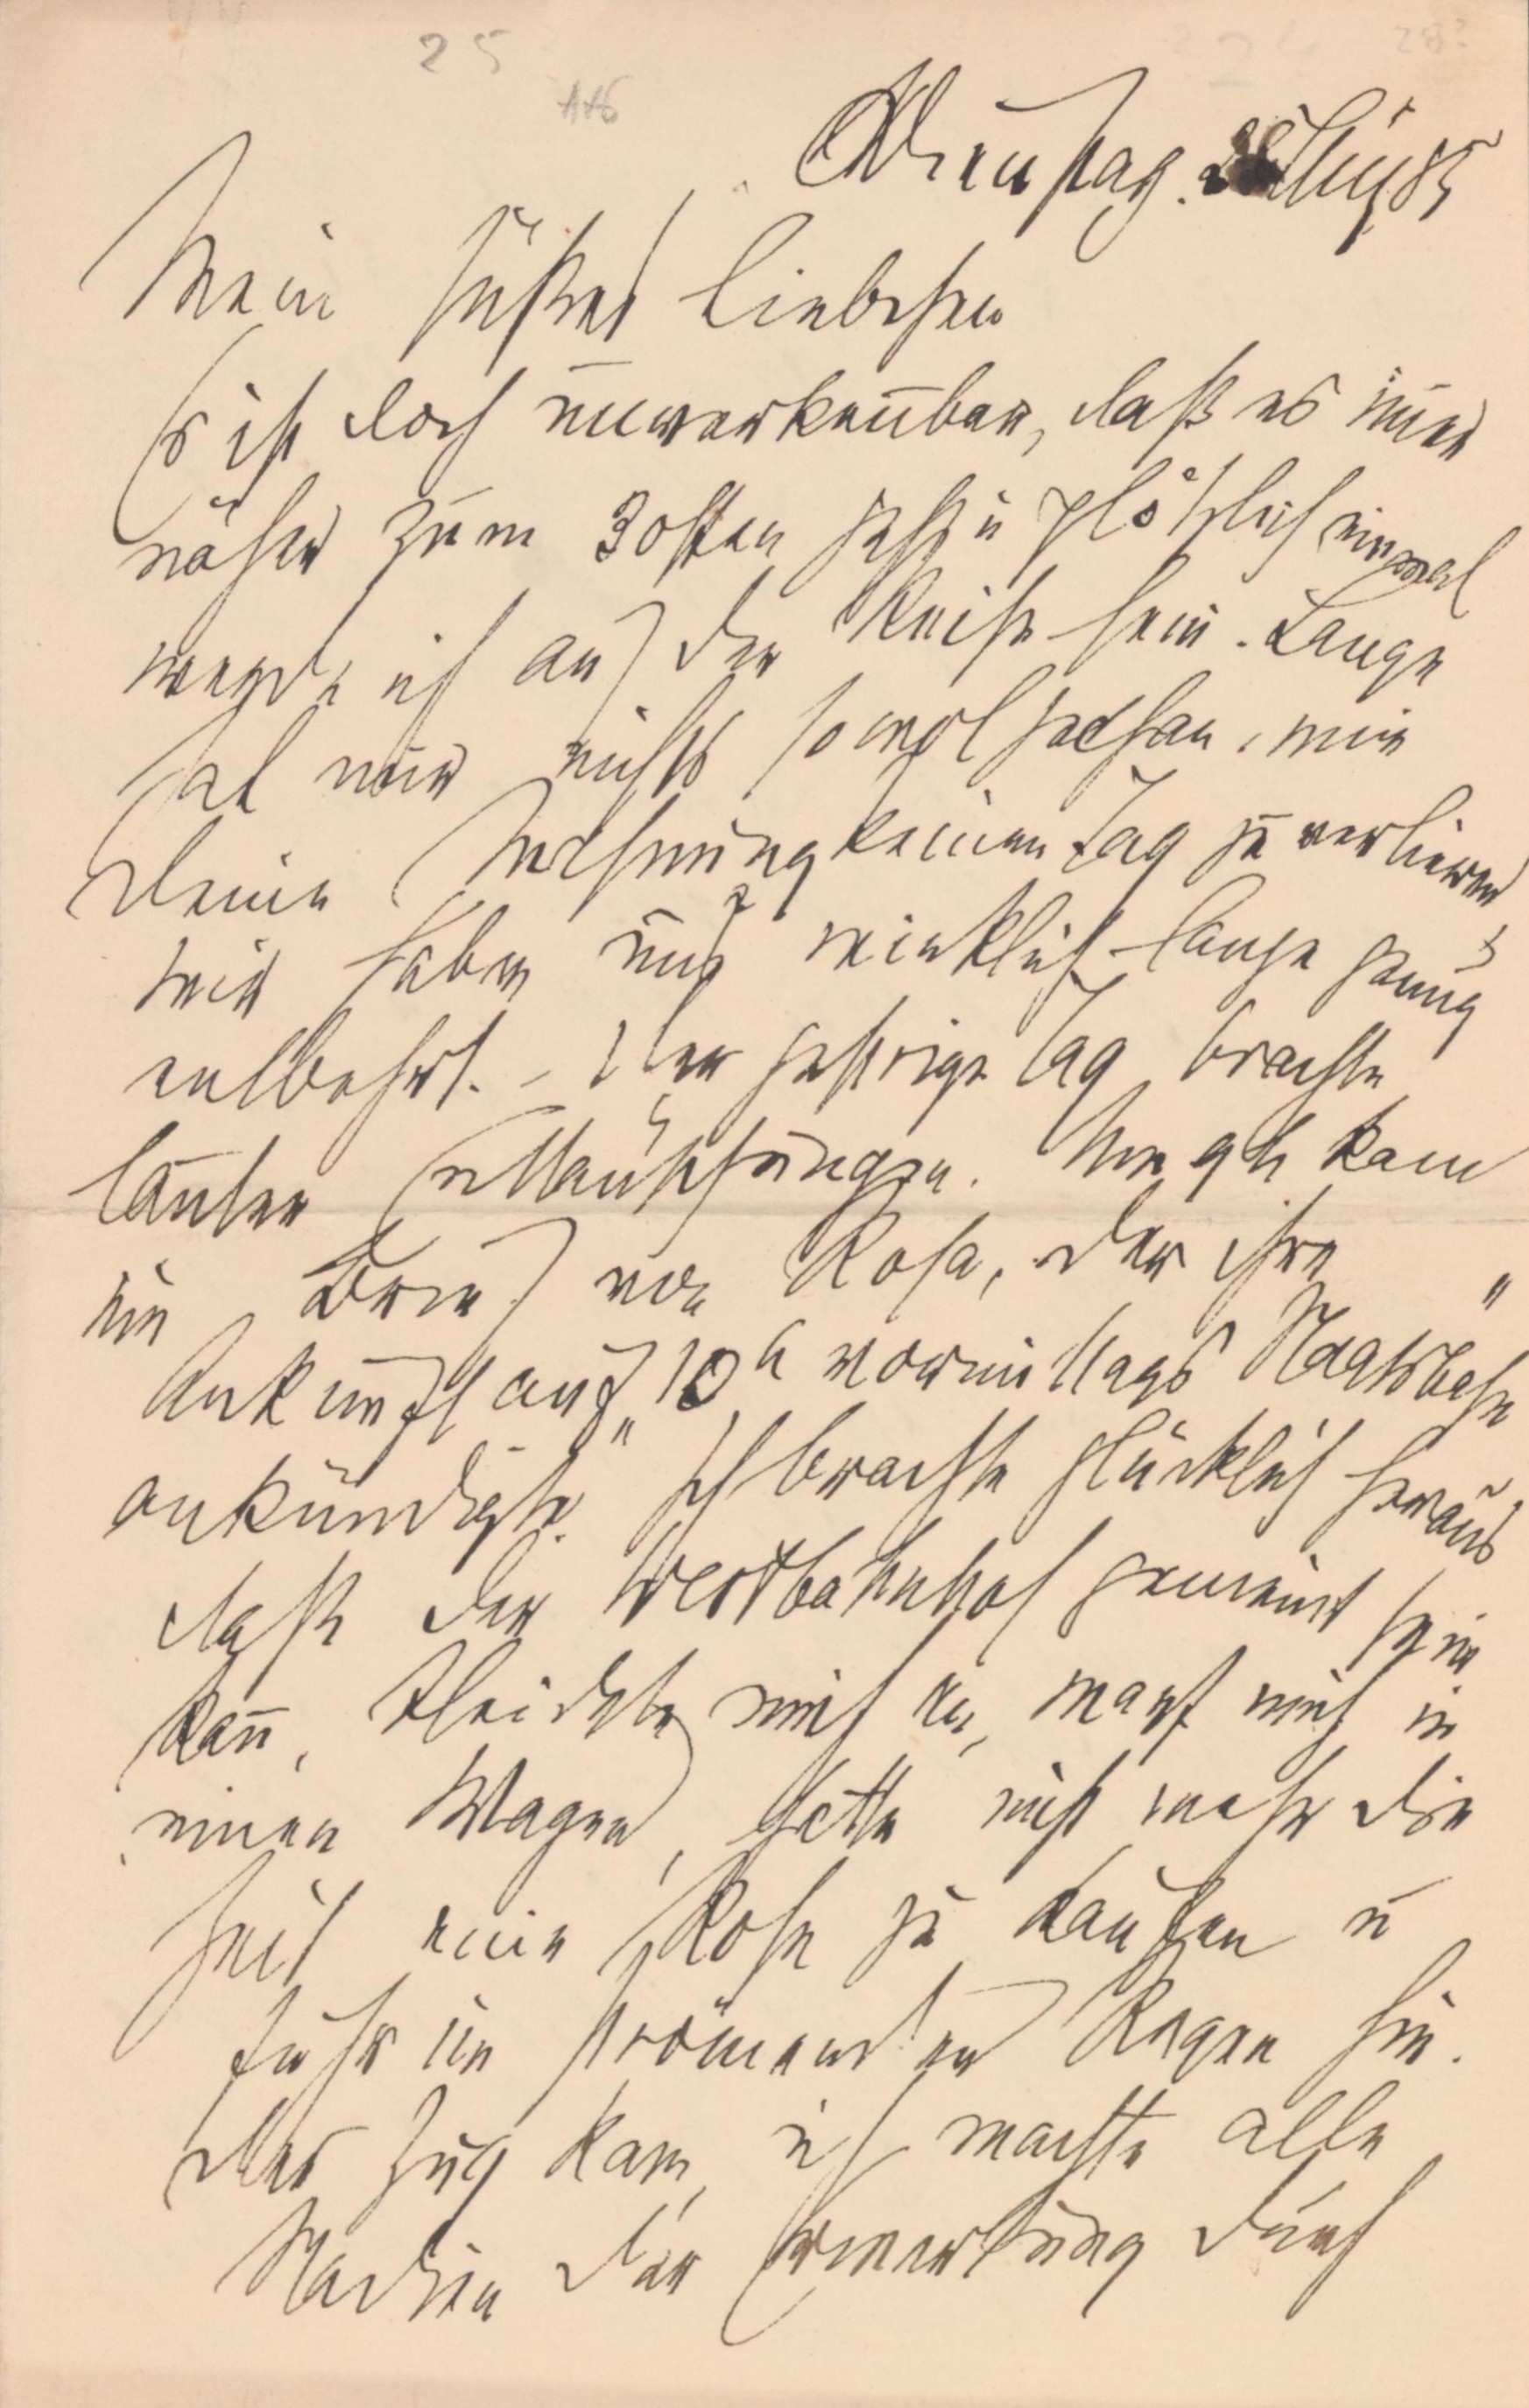 25
116
Dienstag. 25 Aug 85
Mein süßes Liebchen
Es ist doch unverkennbar, daß es imer
näher zum 30sten geht u plötzlich einmal
werde ich auf der Reise sein. Lange
hat mir nichts so wol gethan, wie
Deine Mahnung keinen Tag zu verlieren,
wir haben uns wirklich lange genug
entbehrt. – Der gestrige Tag brachte
lauter Enttäuschungen. Um 9h kam
ein Brief von Rosa, der ihre
Ankunft auf „10h vormittags Staatsbahn"
ankündigte. Ich brachte glücklich heraus
daß der Westbahnhof gemeint sein
kañ, kleidete mich an, warf mich in
einen Wagen, hatte nicht mehr die
Zeit eine Rose zu kaufen u
fuhr im strömenden Regen hin.
Der Zug kam, ich machte alle
Stadien der Erwartung durch